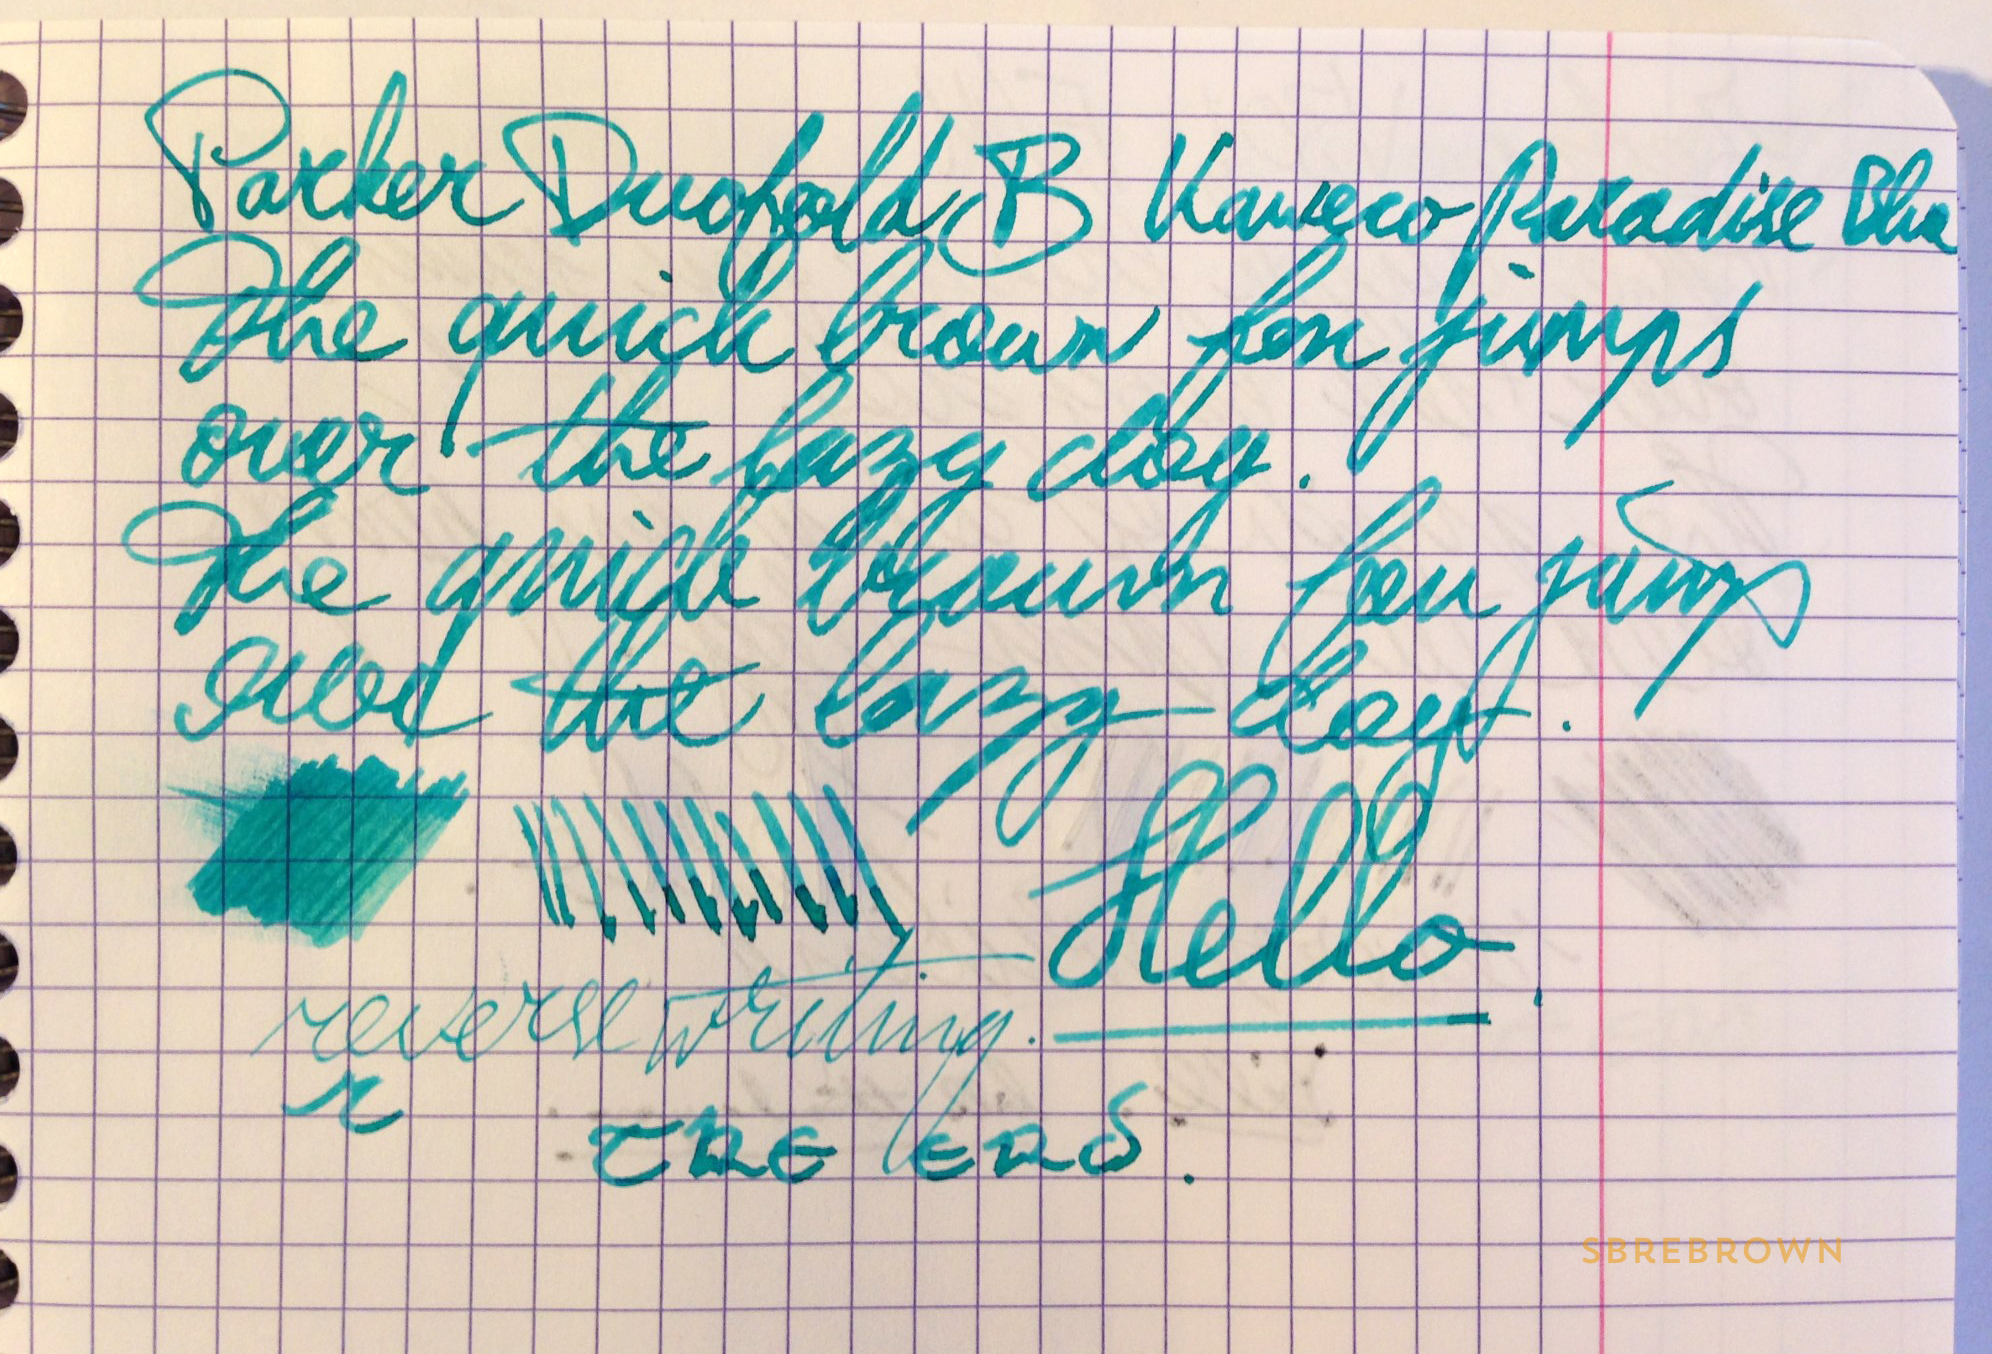 Parker Duofold B Kaweco Paradise Blue
The quick brown fox jumps
over the lazy dog.
The quick brown fox jumps
over the lazy dog.
Hello.
reverse writing.
r
THE END.
SBREBROWN